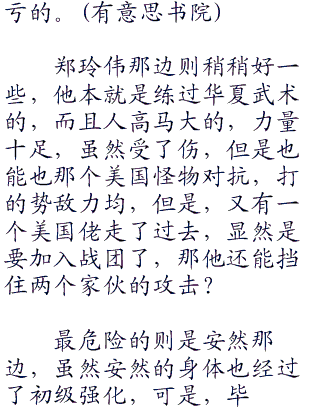 亏的。(有意思书院)
郑玲伟那边则稍稍好一
些，他本就是练过华夏武术
的，而且人高马大的，力量
十足，虽然受了伤，但是也
能也那个美国怪物对抗，打
的势敌力均，但是，又有一
个美国佬走了过去，显然是
要加入战团了，那他还能挡
住两个家伙的攻击？
最危险的则是安然那
边，虽然安然的身体也经过
了初级强化，可是，毕